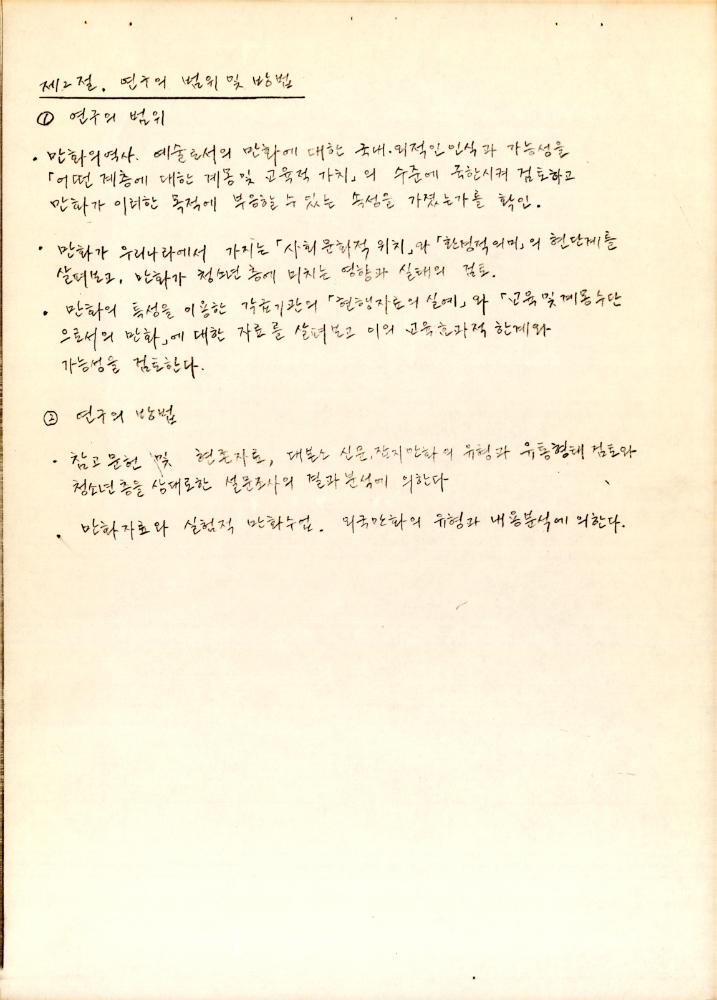 제2절. 연구의 범위 및 방법
① 연구의 범위
• 만화의 역사. 예술로서의 만화에 대한 국내.외적인 인식과 가능성을
「어떤 계층에 대한 계몽 및 교육적 가치」의 수준에 국한시켜 검토하고
만화가 이러한 목적에 부응할 수 있는 속성을 가졌는가를 확인.
• 만화가 우리나라에서 가지는 「사회 문화적 위치」와 「환경적 의미」의 현단계를
살펴보고, 만화가 청소년 층에 미치는 영향과 실태의 검토.
• 만화의 특성을 이용한 각급기관의 「현행자료의 실예」와 「교육 및 계몽수단
으로서의 만화」에 대한 자료를 살펴보고 이의 교육효과적 한계와
가능성을 검토한다.
② 연구의 방법
• 참고 문헌 및 현존자료, 대본소 신문.잡지만화의 유형과 유통형태 검토와
청소년 층을 상대로한 설문조사의 결과분석에 의한다
• 만화자료와 실험적 만화수업. 외국만화의 유형과 내용분석에 의한다.